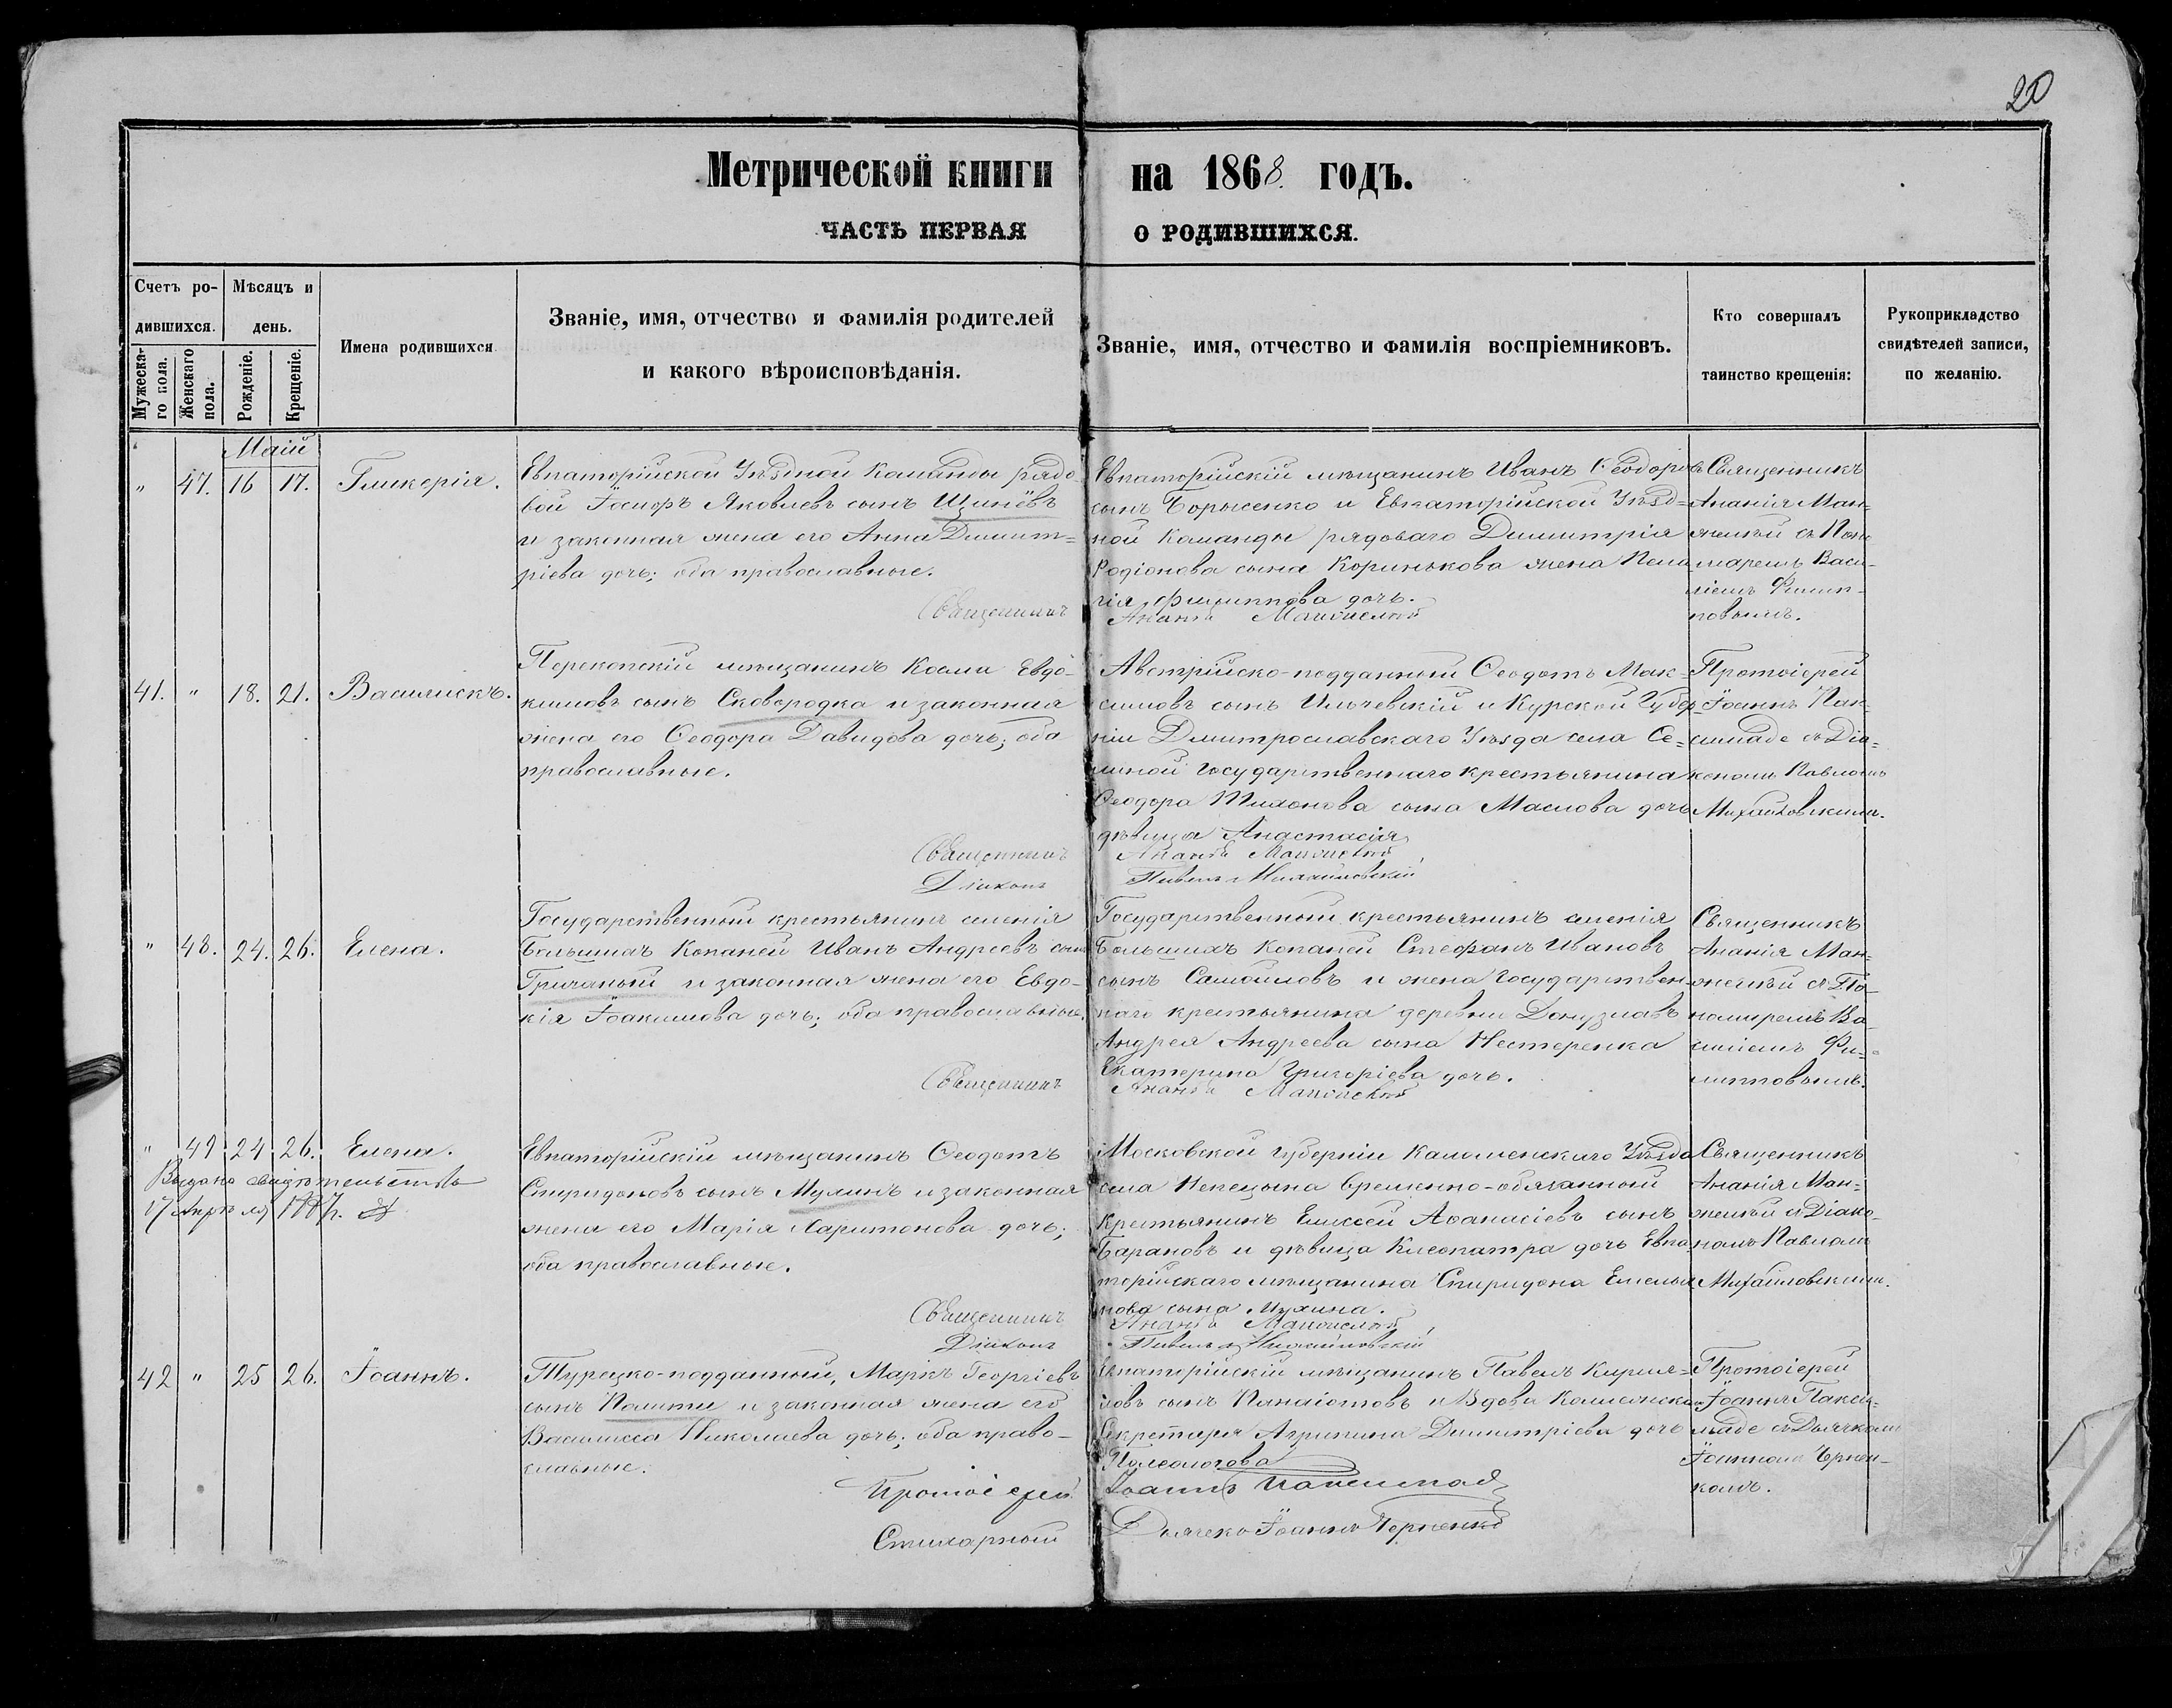 20
Метрической книги на 1868. годъ.
ЧАСТЬ ПЕРВАЯ О РОДИВШИХСЯ.
Счетъ ро-
дившихся.
Мужеска-
го пола.
Женскаго
пола.
Мѣсяцъ и
день.
Рожденіе.
Крещеніе.
Имена родившихся
Званіе, имя, отчество и фамилія родителей
и какого вѣроисповѣданія.
Званіе, имя, отчество и фамилія воспріемниковъ.
Кто совершалъ
таинство крещенія:
Рукоприкладство
свидѣтелей записи,
по желанію.
Маій
" 47. 16 17. Гликерія.
Евпаторійской Уѣздной Команды рядо-
вой Іосифъ Яковлевъ сынъ Щинёвъ
и законная жена его Анна Димит=
ріева дочь; оба православные.
Священникъ
Евпаторійскій мѣщанинъ Иванъ Ѳеодоровъ
сынъ Борысенко и Евпаторійской Уѣзд=
ной Команды рядоваго Димитрія
Родіонова сына Коринькова жена Пела
гія Филиппова дочь.
Ананія
Священникъ
Ананія Ман=
желѣй съ Поно
маремъ Васи-
ліемъ Филип-
повымъ.
41. " 18. 21. Василискъ.
Перекопскій мѣщанинъ Косма Евдо-
кимовъ сынъ Сковородка и законная
жена его Ѳеодора Давидова дочь; оба
православные.
Священникъ
Діаконъ
Австрійско-подданный Ѳеодотъ Мак-
симовъ сынъ Ильчевскій и Курской Губер-
ніи Дмитрославскаго Уѣзда села Се=
линой Государственнаго крестьянина
Ѳеодора Тихонова сына Маслова дочь
дѣвица Анастасія
Ананія
Павелъ Михайловскій
Протоіерей
Іоаннъ Пак-
симаде съ Діа=
кономъ Павломъ
Михайловскимъ.
" 48. 24. 26. Елена.
Государственный крестьянинъ селенія
Большихъ Копаней Иванъ Андреевъ сынъ
Гричаный и законная жена его Евдо-
кія Іоакимова дочь; оба православные.
Священникъ
Государственный крестьянинъ селенія
Большихъ Копаней Стефанъ Ивановъ
сынъ Самойловъ и жена Государствен-
наго крестьянина деревни Донузлавъ
Андрея Андреева сына Нестеренка
Екатерина Григоріева дочь.
Ананія
Священникъ
Ананія Ман=
желѣй съ По-
номаремъ Ва-
силіемъ Фи-
липповымъ.
" 49 24 26. Елена.
Выдано свидѣтельство
17 Апрѣля 1887г.
Евпаторійскій мѣщанинъ Ѳеодотъ
Спиридоновъ сынъ Мулинъ и законная
жена его Марія Харитонова дочь;
оба православные.
Священникъ
Діаконъ
Московской губерніи Каломенскаго Уѣзда
села Непецына временно-обязанный
Крестьянинъ Елисей Аѳанасіевъ сынъ
Барановъ и дѣвица Клеопатра дочь Евпа
торійскаго мѣщанина Спиридона Емелья
нова сына Мухина.
Ананія
Павелъ Михайловскій
Священникъ
Ананія Ман-
желѣй съ Діако-
номъ Павломъ
Михайловскимъ.
42 " 25 26. Іоаннъ.
Турецко-подданный, Маркъ Георгіевъ
сынъ Полити и законная жена его
Василисса Николаева дочь; оба право-
славные.
Протоіерей
Стихарный
Евпаторійскій мѣщанинъ Павелъ Кирил-
ловъ сынъ Панаіотовъ и Вдова
Секретаря Агрипина Димитріева дочь
Полеологова
Іоаннъ
Дьячекъ Іоаннъ Черненко
Протоіерей
Іоаннъ Пакси-
маде съ Дьячкомъ
Іоанномъ Чернен-
комъ.